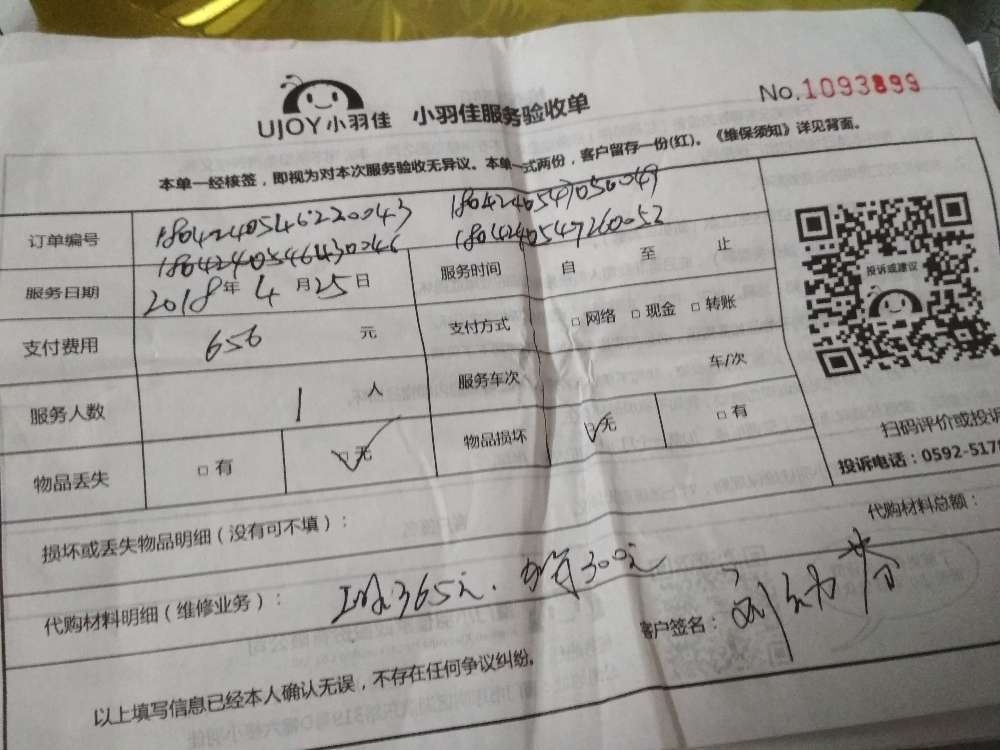 UJOY小羽佳 小羽佳服务验收单 No.1093899
本单一经核签,即视为对本次服务验收无异议。本单一式两份,客户留存一份(红)。《维保须知》详见背面。
订单编号 1804240546220043 1804240547050049
1804240546430046 1804240547260052
服务日期 2018年4月25日 服务时间 自 至 止
支付费用 656 元 支付方式 □网络 □现金 □转账
服务人数 1 人 服务车次 车/次
物品丢失 □有 ☑无 物品损坏 ☑无 □有
投诉或建议
扫码评价或投诉
投诉电话:0592-5178
损坏或丢失物品明细(没有可不填):
代购材料总额:
代购材料明细(维修业务): 365元. 300元
客户签名:
以上填写信息已经本人确认无误,不存在任何争议纠纷。